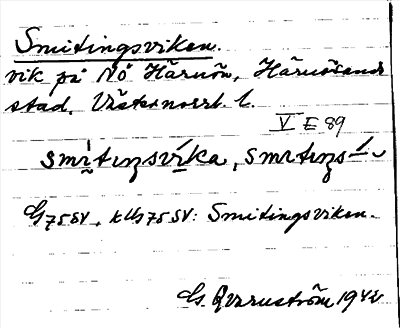 Smitingsviken.
vik på NÖ Härnön, Härnösands
stad. Västernorrl. l.
V E 89
smìtıŋsvíka, smıtıŋs
G75SV, kUs75SV: Smitingsviken.
G. Qvarnström 1942